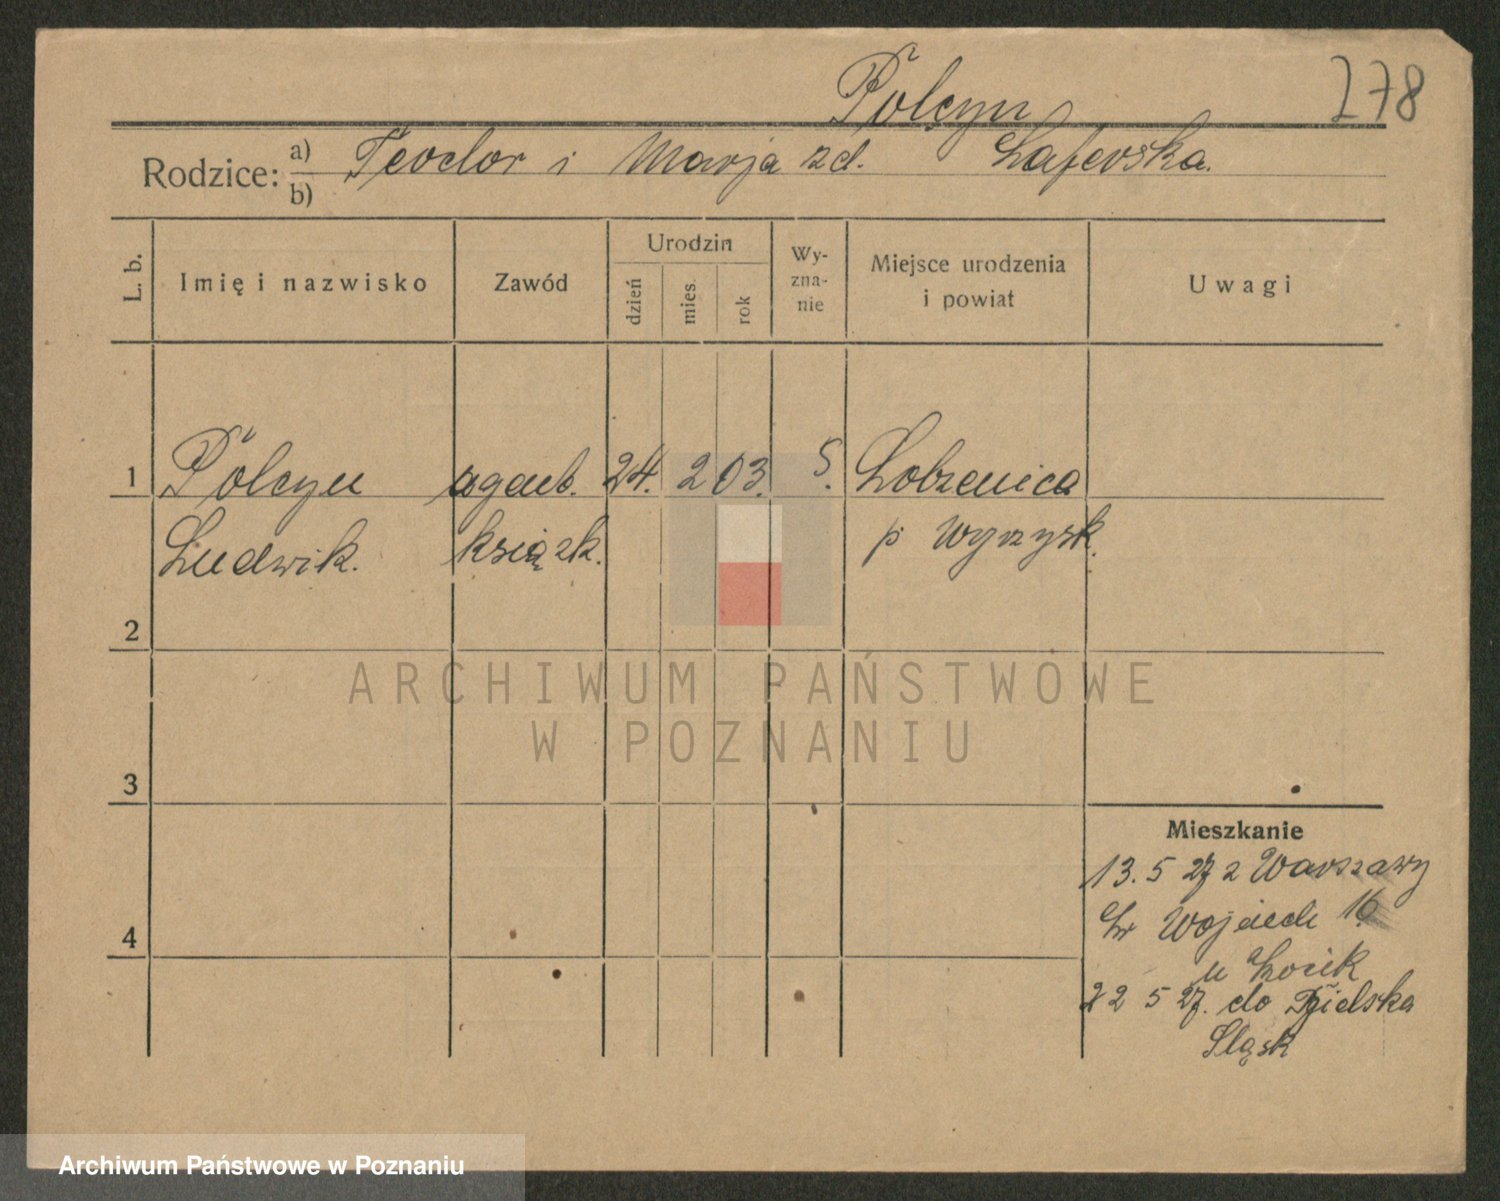 Polcyn 278
Rodzice: a) b) Teodor i Marja zd. Lafevska.
L. b. Imię i nazwisko Zawód Urodzin dzień mies. rok Wyznanie Miejsce urodzenia i powiat Uwagi
1 Polcyn agent. 24. 2 03. Lobzenica
Ludwik. książk. p. Wyrzysk.
2
3
4
Mieszkanie
13. 5 27 z Warszawy
św Wojciech 16
u
22 5 27. do Bielska
Śląsk
ARCHIWUM PAŃSTWOWE
W POZNANIU
Archiwum Państwowe w Poznaniu